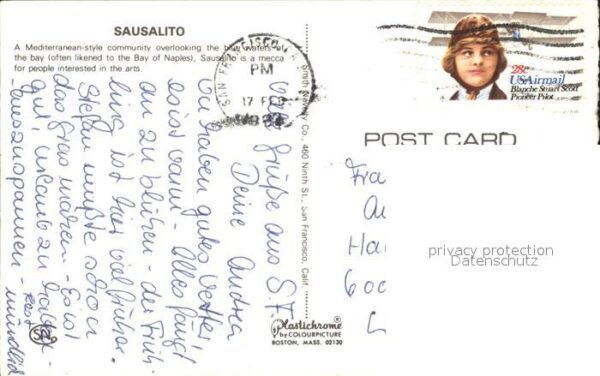 SAUSALITO
A Mediterranean-style community overlooking the blue waters of
the bay (often likened to the Bay of Naples), Sausalito is a mecca
for people interested in the arts.
SAN FRANCISCO
PM
17 FEB
28c
USAirmail
Blanche Stuart Scott
Pioneer Pilot
POST CARD
Co., 460 Ninth St., San Francisco, Calif.
Plastichrome®
by COLOURPICTURE
BOSTON, MASS. 02130
Grüße aus S.F.
Deine Andrea
haben gutes Wetter,
es ist warm - Alles fängt
an zu blühen - der Früh-
ling ist hier viel früher.
Stefan mußte schon
das Gras mähen - Es ist
gut, Urlaub zu haben -
auszuspannen -
Rest
mündlich
Fra
Au
Ha
600
L
privacy protection
Datenschutz